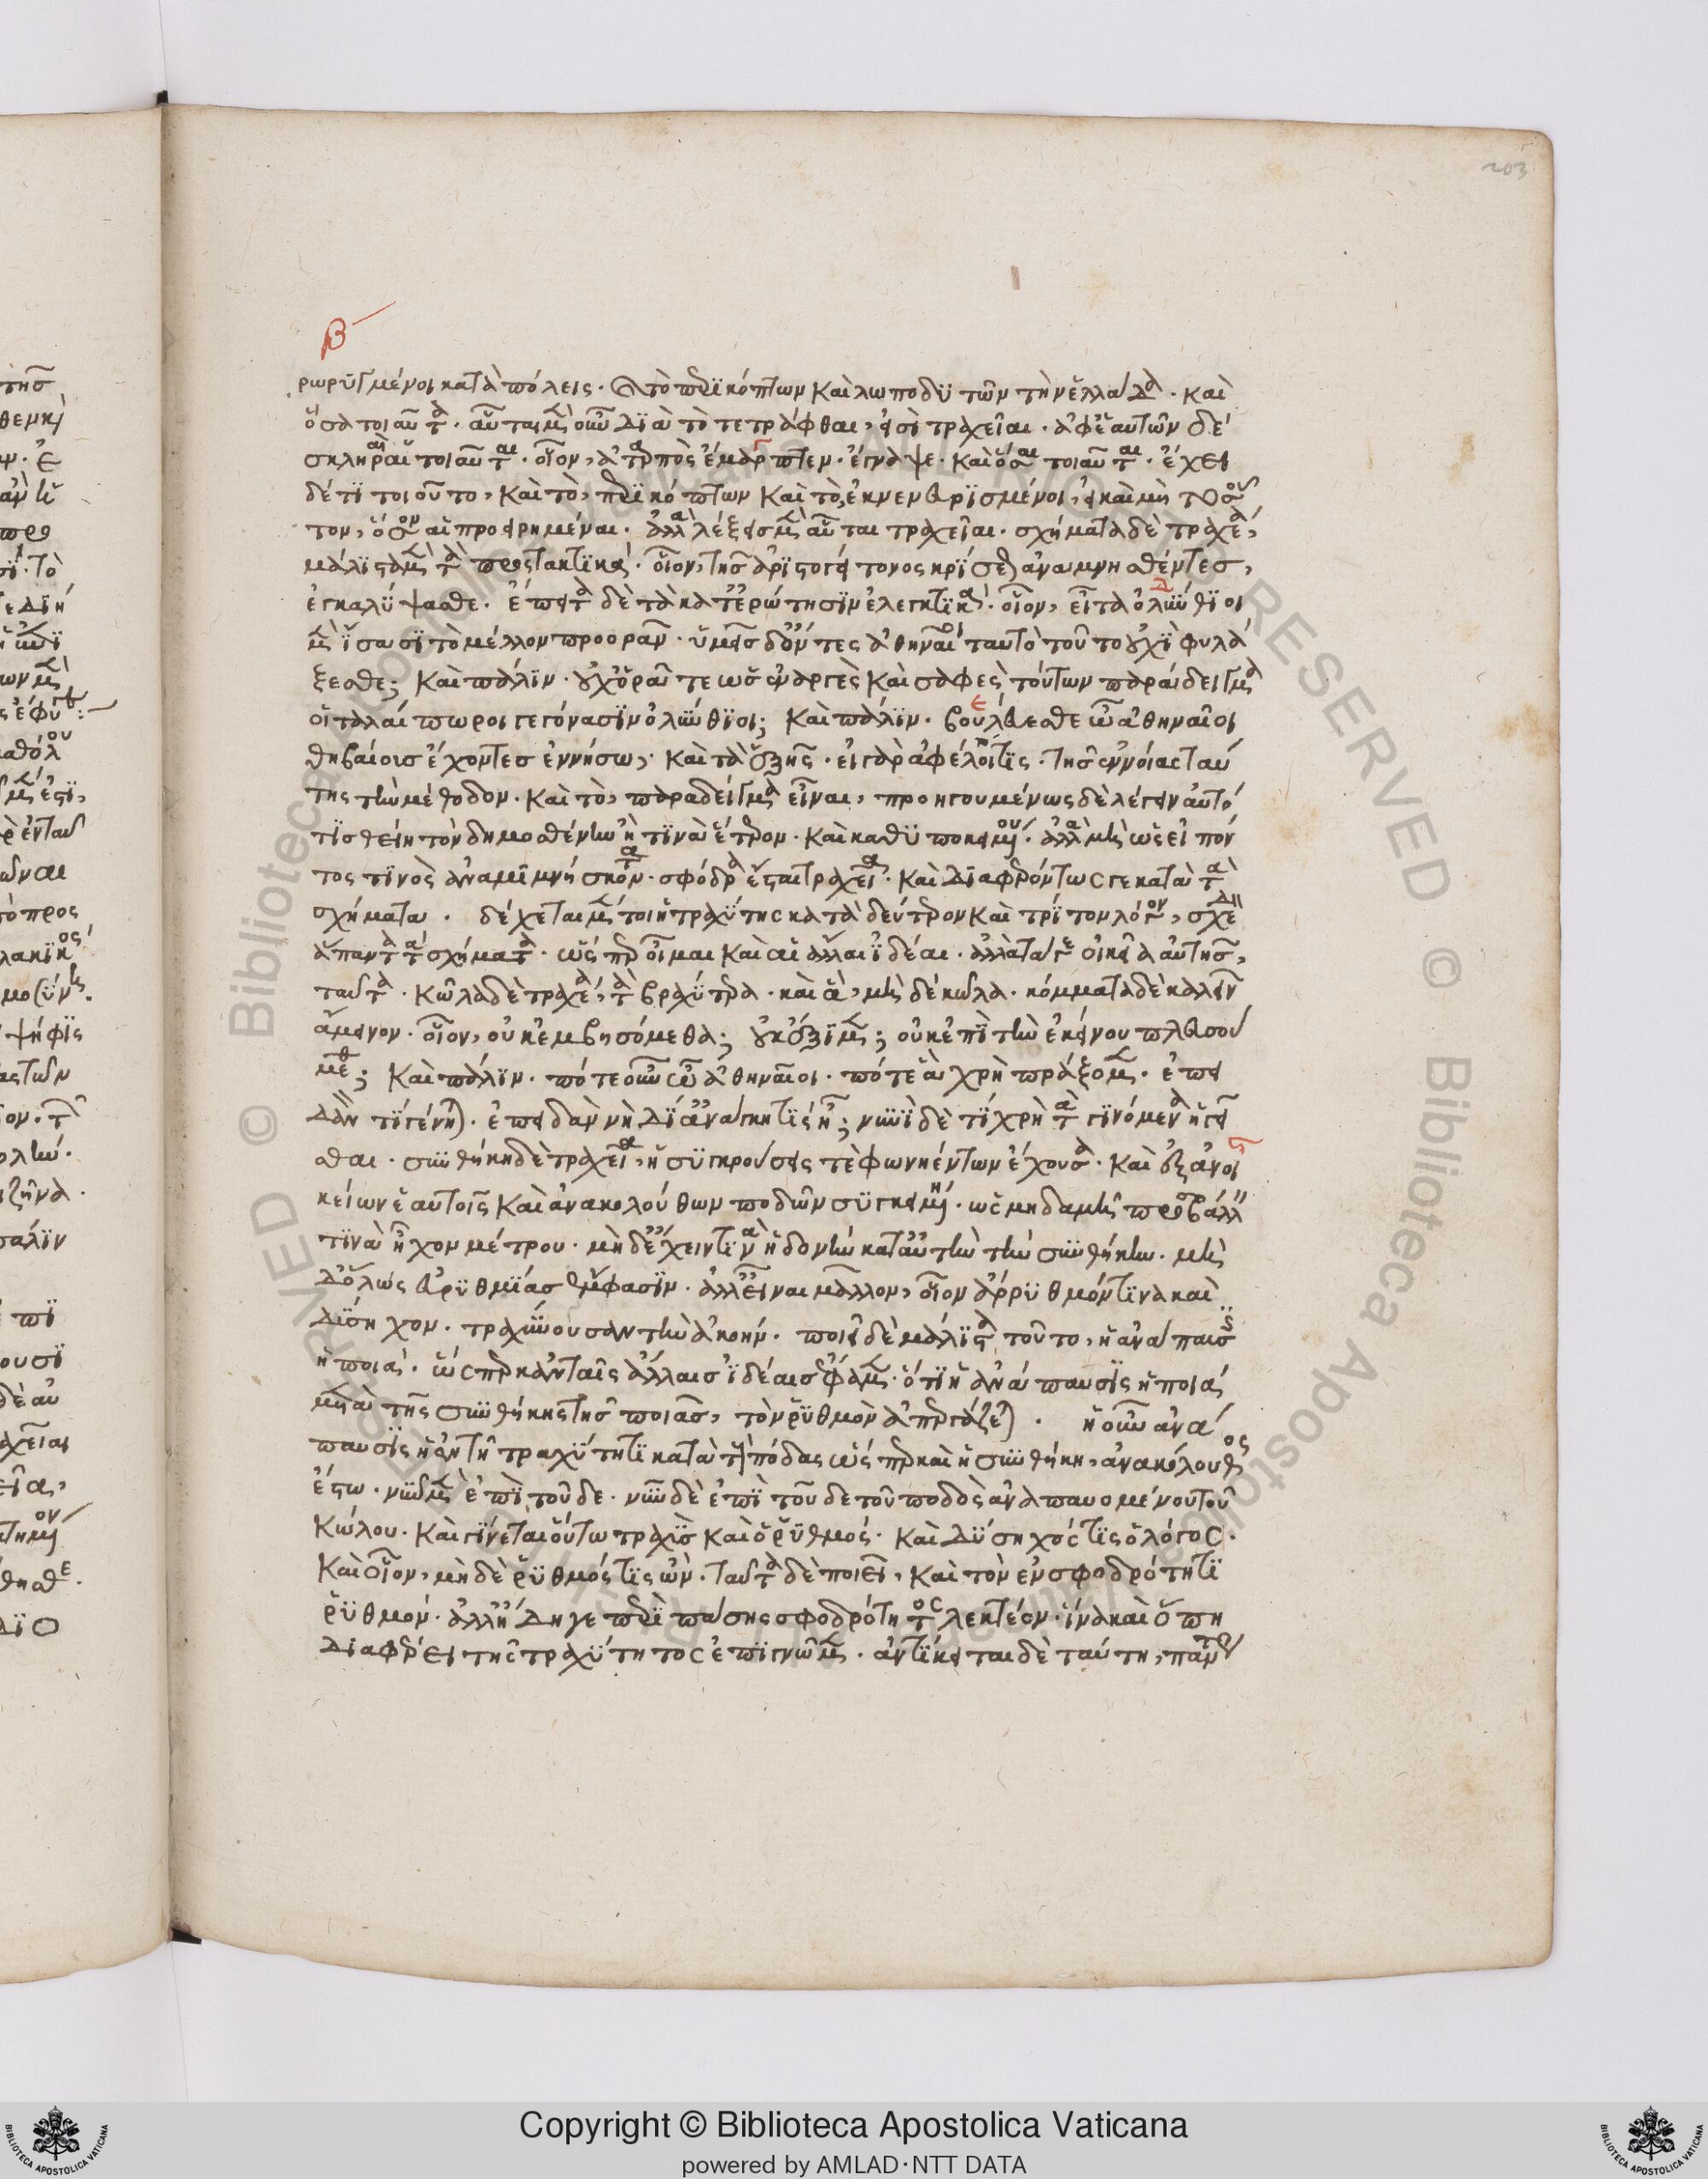 203
β
ρωρυγμένοι κατὰ πόλεις· καὶ τὸ περικόπτων καὶ λωποδυτῶν τὴν ἑλλάδα· καὶ
ὅσα τοιαῦτα· αὗται μὲν οὖν διὰ τὸ τετράφθαι, εἰσὶ τραχεῖαι· ἀφ' ἑαυτῶν δὲ
σκληραὶ αἱ τοιαῦται· οἷον, ἀταρπὸς ἔμαρπτεν· ἔγναψε· καὶ ὅσαι τοιαῦται· ἔχει
δέ τι τοιοῦτο, καὶ τὸ, περικόπτων καὶ τὸ, ἐκνενευρισμένοι, εἰ καὶ μὴ τοσοῦ
τον, ὅσον αἱ προειρημέναι· ἀλλὰ λέξεις μὲν αὗται τραχεῖαι· σχήματα δὲ τραχέα,
μάλιστα μὲν τὰ προστακτικά· οἷον, τῆς ἀριστογείτονος κρίσεως ἀναμνησθέντες,
ἐγκαλύψασθε· ἔπειτα δὲ τὰ κατ' ἐρώτησιν ἐλεγκτικά· οἷον, εἶτα ὀλύνθιοι
μὲν ἴσασι τὸ μέλλον προορᾶν· ὑμεῖς δ' ὄντες ἀθηναῖοι ταυτὸ τοῦτο οὐχὶ φυλά
ξεσθε; καὶ πάλιν· οὐχ ὁρᾶτε ὡς ἐναργὲς καὶ σαφὲς τούτων παράδειγμα
οἱ ταλαίπωροι γεγόνασιν ὀλύνθιοι; καὶ πάλιν· βουλεύεσθε ὦ ἀθηναῖοι
θηβαίοις ἔχοντες ἐν νήσω, καὶ τὰ ἑξῆς· εἰ γὰρ ἀφέλοι τις· τῆς ἐννοίας ταύ
της τὴν μέθοδον· καὶ τὸ, παράδειγμα εἶναι, προηγουμένως δὲ λέγειν αὐτό
τις θείη τὸν δημοσθένην ἢ τινὰ ἕτερον· καὶ καθ' ὑποκειμένου· ἀλλὰ μὴ ὡς εἰπόν
τος τινὸς ἀναμιμνήσκοντα· σφόδρα ἔσται τραχεῖα· καὶ διαφερόντως γε κατὰ τὰ
σχήματα· δέχεται μέν τοι ἡ τραχύτης κατὰ δεύτερον καὶ τρίτον λόγον, σχεδὸν
ἅπαντα τὰ σχήματα· ὥσπερ οἶμαι καὶ αἱ ἄλλαι ἰδέαι· ἀλλὰ τά γε οἰκεῖα αὐτῆς,
ταῦτα· κῶλα δὲ τραχέα, τὰ βραχύτερα· καὶ ἃ, μὴ δὲ κῶλα· κόμματα δὲ καλεῖν
ἄμεινον· οἷον, οὐκ ἐμβησόμεθα; οὐκ ἔξιμεν; οὐκ ἐπὶ τὴν ἐκείνου πλευσού
μεθα; καὶ πάλιν· πότε οὖν ὦ ἀθηναῖοι· πότε ἃ χρὴ πράξομεν· ἐπει
δὰν τί γένηται· ἐπειδὰν νὴ δί' ἀνάγκη τις ἦ; νυνὶ δὲ τί χρὴ τὰ γινόμενα ἡγεῖ
σθαι· συνθήκη δὲ τραχεῖα, ἡ συγκρούσεις τὲ φωνηέντων ἔχουσα· καὶ ἐξ ἀνοι
κείων ἑαυτοῖς καὶ ἀνακολούθων ποδῶν συγκειμένη· ὡς μηδαμῆ προσβάλλειν
τινὰ ἦχον μέτρου· μὴ δ' ἔχειν τινὰ ἡδονὴν κατ' αὐτὴν τὴν συνθήκην· μὴ
δ' ὅλως εὐρυθμίας ἔμφασιν· ἀλλ' εἶναι μᾶλλον, οἷον ἄρρυθμόν τινα καὶ
δύσηχον· τραχύνουσαν τὴν ἀκοήν· ποιεῖ δὲ μάλιστα τοῦτο, ἡ ἀνάπαυσις
ἡ ποιά· ὥσπερ κἀν ταῖς ἄλλαις ἰδέαις ἔφαμεν· ὅτι ἡ ἀνάπαυσις ἡ ποιά
μετὰ τῆς συνθήκης τῆς ποιᾶς, τὸν ῥυθμὸν ἀπεργάζεται· ἡ οὖν ἀνά
παυσις ἡ ἐν τῆ τραχύτητι κατὰ τοὺς πόδας ὥσπερ καὶ ἡ συνθήκη, ἀνακόλουθος
ἔστω· νῦν μὲν ἐπὶ τοῦδε· νῦν δὲ ἐπὶ τοῦδε τοῦ ποδὸς ἀναπαυομένου τοῦ
κώλου· καὶ γίνεται οὕτω τραχὺς καὶ ὁ ῥυθμός· καὶ δύσηχός τις ὁ λόγος·
καὶ οἷον, μὴ δὲ ῥυθμός τις ὤν· ταῦτα δὲ ποιεῖ, καὶ τὸν ἐν σφοδρότητι
ῥυθμόν· ἀλλ' ἤδη γε περὶ πάσης σφοδρότητος λεκτέον· ἵνα καὶ ὅπη
διαφέρει τῆς τραχύτητος ἐπιγνῶμεν· ἀντίκειται δὲ ταύτη, πάντη
Copyright © Biblioteca Apostolica Vaticana
powered by AMLAD·NTT DATA